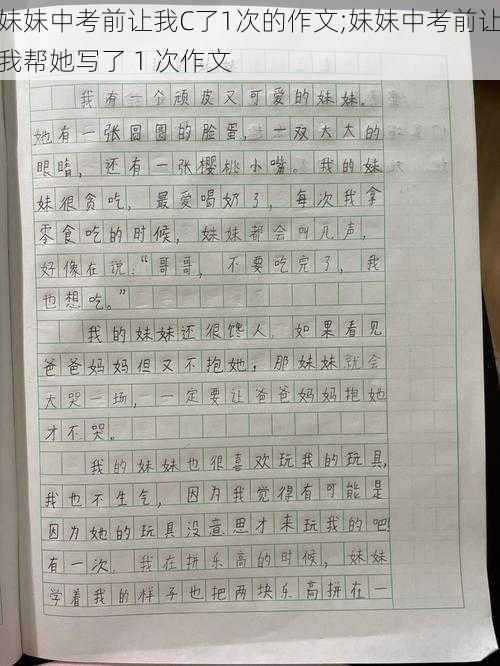 妹妹中考前让我C了1次的作文;妹妹中考前让
我帮她写了1次作文
我有一个顽皮又可爱的妹妹。
她有一张圆圆的脸蛋，一双大大的
眼睛，还有一张樱桃小嘴。我的妹
妹很贪吃，最爱喝奶了，每次我拿
零食吃的时候，妹妹都会叫几声，
好像在说：“哥哥，不要吃完了，我
也想吃。”
我的妹妹还很馋人，如果看见
爸爸妈妈但又不抱她，那妹妹就会
大哭一场，一定要让爸爸妈妈抱她
才不哭。
我的妹妹也很喜欢玩我的玩具，
我也不生气，因为我觉得有可能是
因为她的玩具没意思才来玩我的吧！
有一次，我在拼乐高的时候，妹妹
学着我的样子也把两块乐高拼在一